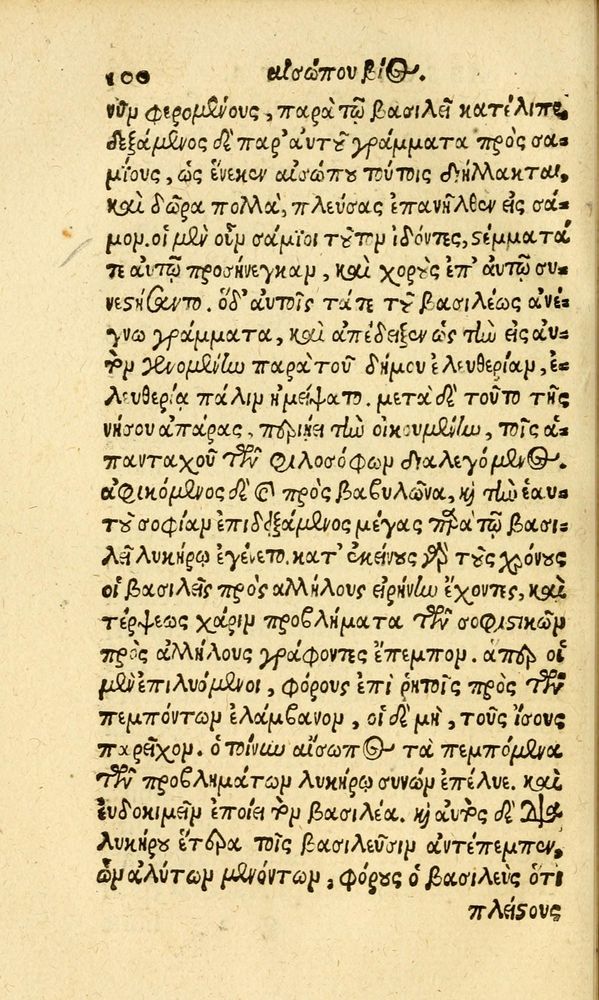 100 αἰσώπου βίος.
νῦν φερομένους, παρὰ τῷ βασιλεῖ κατέλιπε,
δεξάμενος δὲ παρ' αὐτοῦ γράμματα πρὸς σα-
μίους, ὡς ἕνεκεν αἰσώπου τούτοις διήλλακται,
καὶ δῶρα πολλὰ, πλεύσας ἐπανῆλθεν εἰς σά-
μον. οἱ μὲν οὖν σάμιοι τοῦτον ἰδόντες, στέμματά
τε αὐτῷ προσήνεγκαν, καὶ χοροὺς ἐπ' αὐτῷ συ-
νεστήσαντο. ὁ δ' αὐτοῖς τάτε τοῦ βασιλέως ἀνέ-
γνω γράμματα, καὶ ἀπέδειξεν ὡς τὴν εἰς αὐ-
τὸν γενομένην παρὰ τοῦ δήμου ἐλευθερίαν, ἐ-
λευθερίᾳ πάλιν ἠμείψατο. μετὰ δὲ τοῦτο τῆς
νήσου ἀπάρας, περιῄει τὴν οἰκουμένην, τοῖς ἁ-
πανταχοῦ τῶν φιλοσόφων διαλεγόμενος.
ἀφικόμενος δὲ καὶ πρὸς βαβυλῶνα, καὶ τὴν ἑαυ-
τοῦ σοφίαν ἐπιδειξάμενος μέγας παρὰ τῷ βασι-
λεῖ λυκήρῳ ἐγένετο. κατ' ἐκείνους γὰρ τοὺς χρόνους
οἱ βασιλεῖς πρὸς ἀλλήλους εἰρήνην ἔχοντες, καὶ
τέρψεως χάριν προβλήματα τῶν σοφιστικῶν
πρὸς ἀλλήλους γράφοντες ἔπεμπον. ἅπερ οἱ
μὲν ἐπιλυόμενοι, φόρους ἐπὶ ῥητοῖς πρὸς τῶν
πεμπόντων ἐλάμβανον, οἱ δὲ μὴ, τοὺς ἴσους
παρεῖχον. ὁ τοίνυν αἴσωπος τὰ πεμπόμενα
τῶν προβλημάτων λυκήρῳ συνῶν ἐπέλυε. καὶ
εὐδοκιμεῖν ἐποίει τὸν βασιλέα. καὶ αὐτὸς δὲ διὰ
λυκήρου ἕτερα τοῖς βασιλεῦσιν ἀντέπεμπεν,
ὧν ἀλύτων μενόντων, φόρους ὁ βασιλεὺς ὅτι
πλείστους